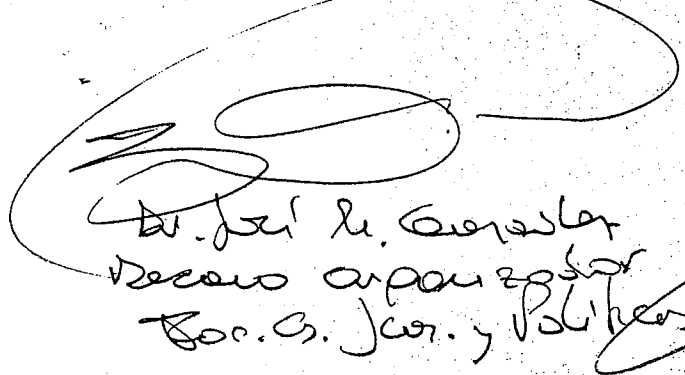 Dr. José M. González
Decano organizador
Fac. Cs. Jur. y Políticas